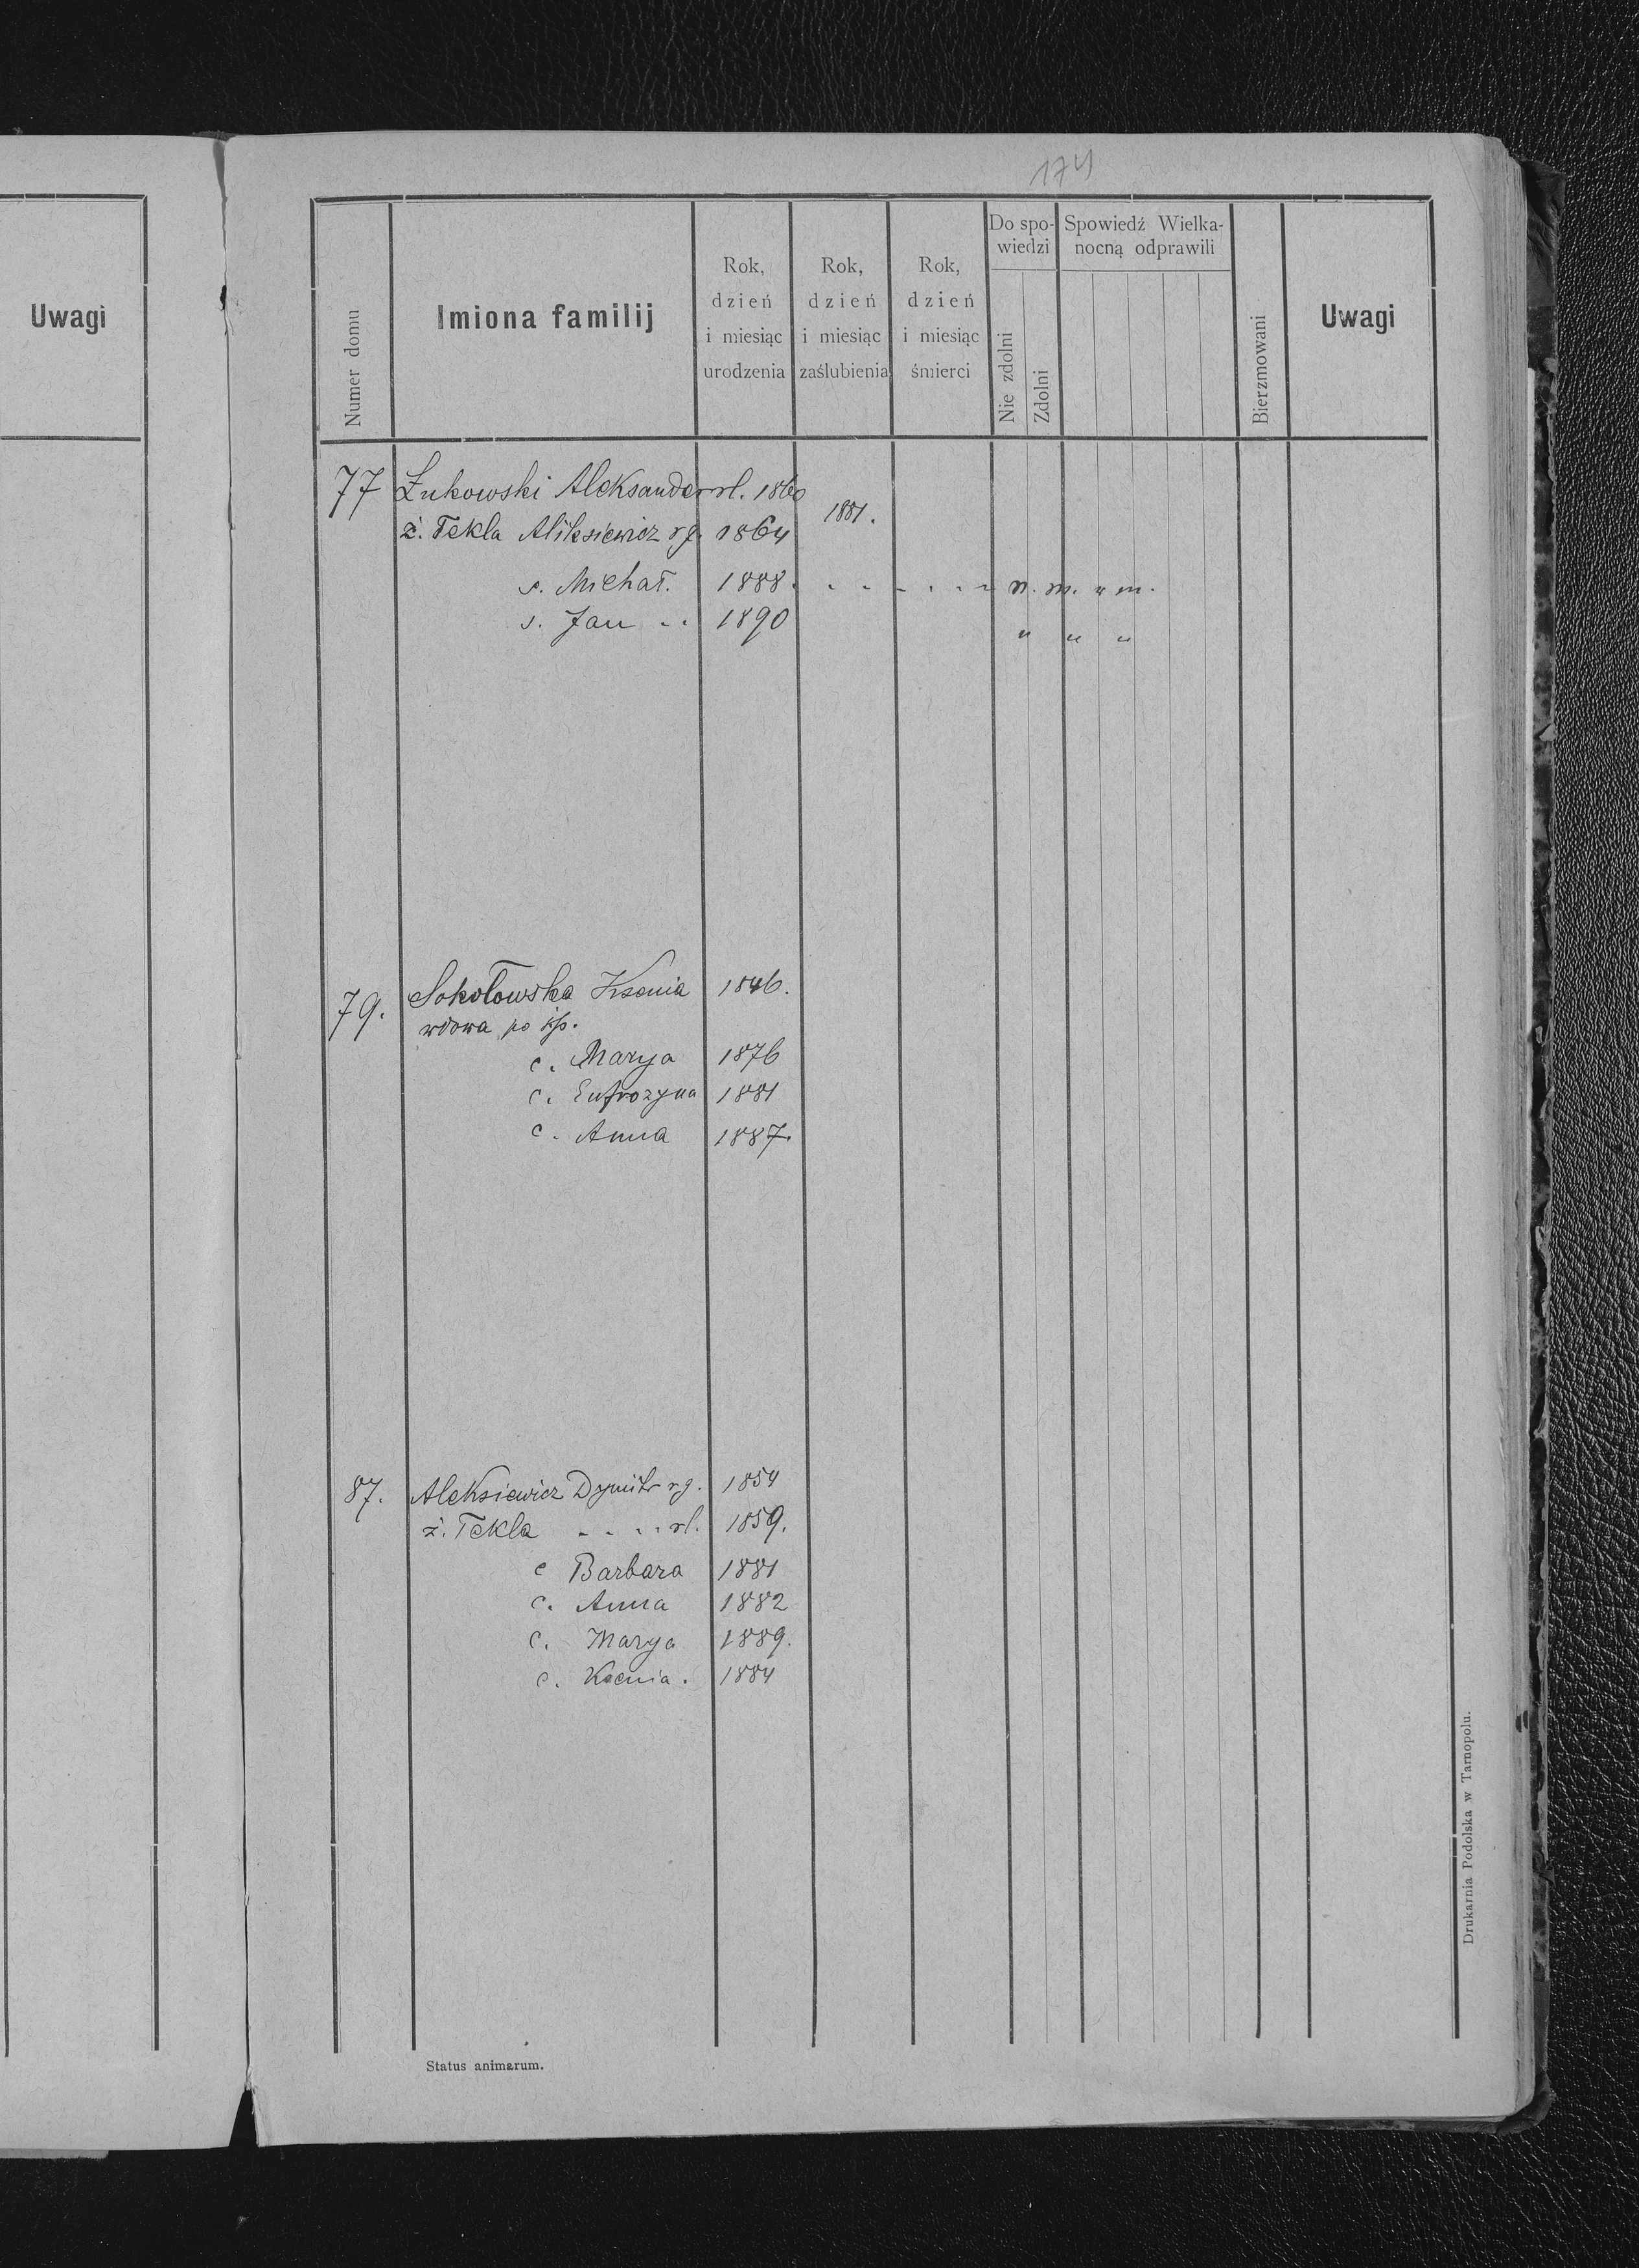 174
Uwagi
Numer domu
Imiona familij
Rok, dzień i miesiąc urodzenia
Rok, dzień i miesiąc zaślubienia
Rok, dzień i miesiąc śmierci
Do spo-
wiedzi
Nie zdolni
Zdolni
Spowiedź Wielka-
nocną odprawili
Bierzmowani
Uwagi
77 Żukowski Aleksander rl. 1860
1881.
ż. Tekla Aliksiewicz rg. 1864
s. Michał. 1888.
s. Jan 1890
" " "
79. Sokołowska Ksenia 1846.
wdowa po
c. Marya 1876
c. Eufrozyna 1881
c. Anna 1887.
87. Aleksiewicz Dymitr rg. 1854
ż. Tekla rl. 1859.
c Barbara 1881
c. Anna 1882
c. Marya 1889.
c. Ksenia. 1884
Status animarum.
Drukarnia Podolska w Tarnopolu.